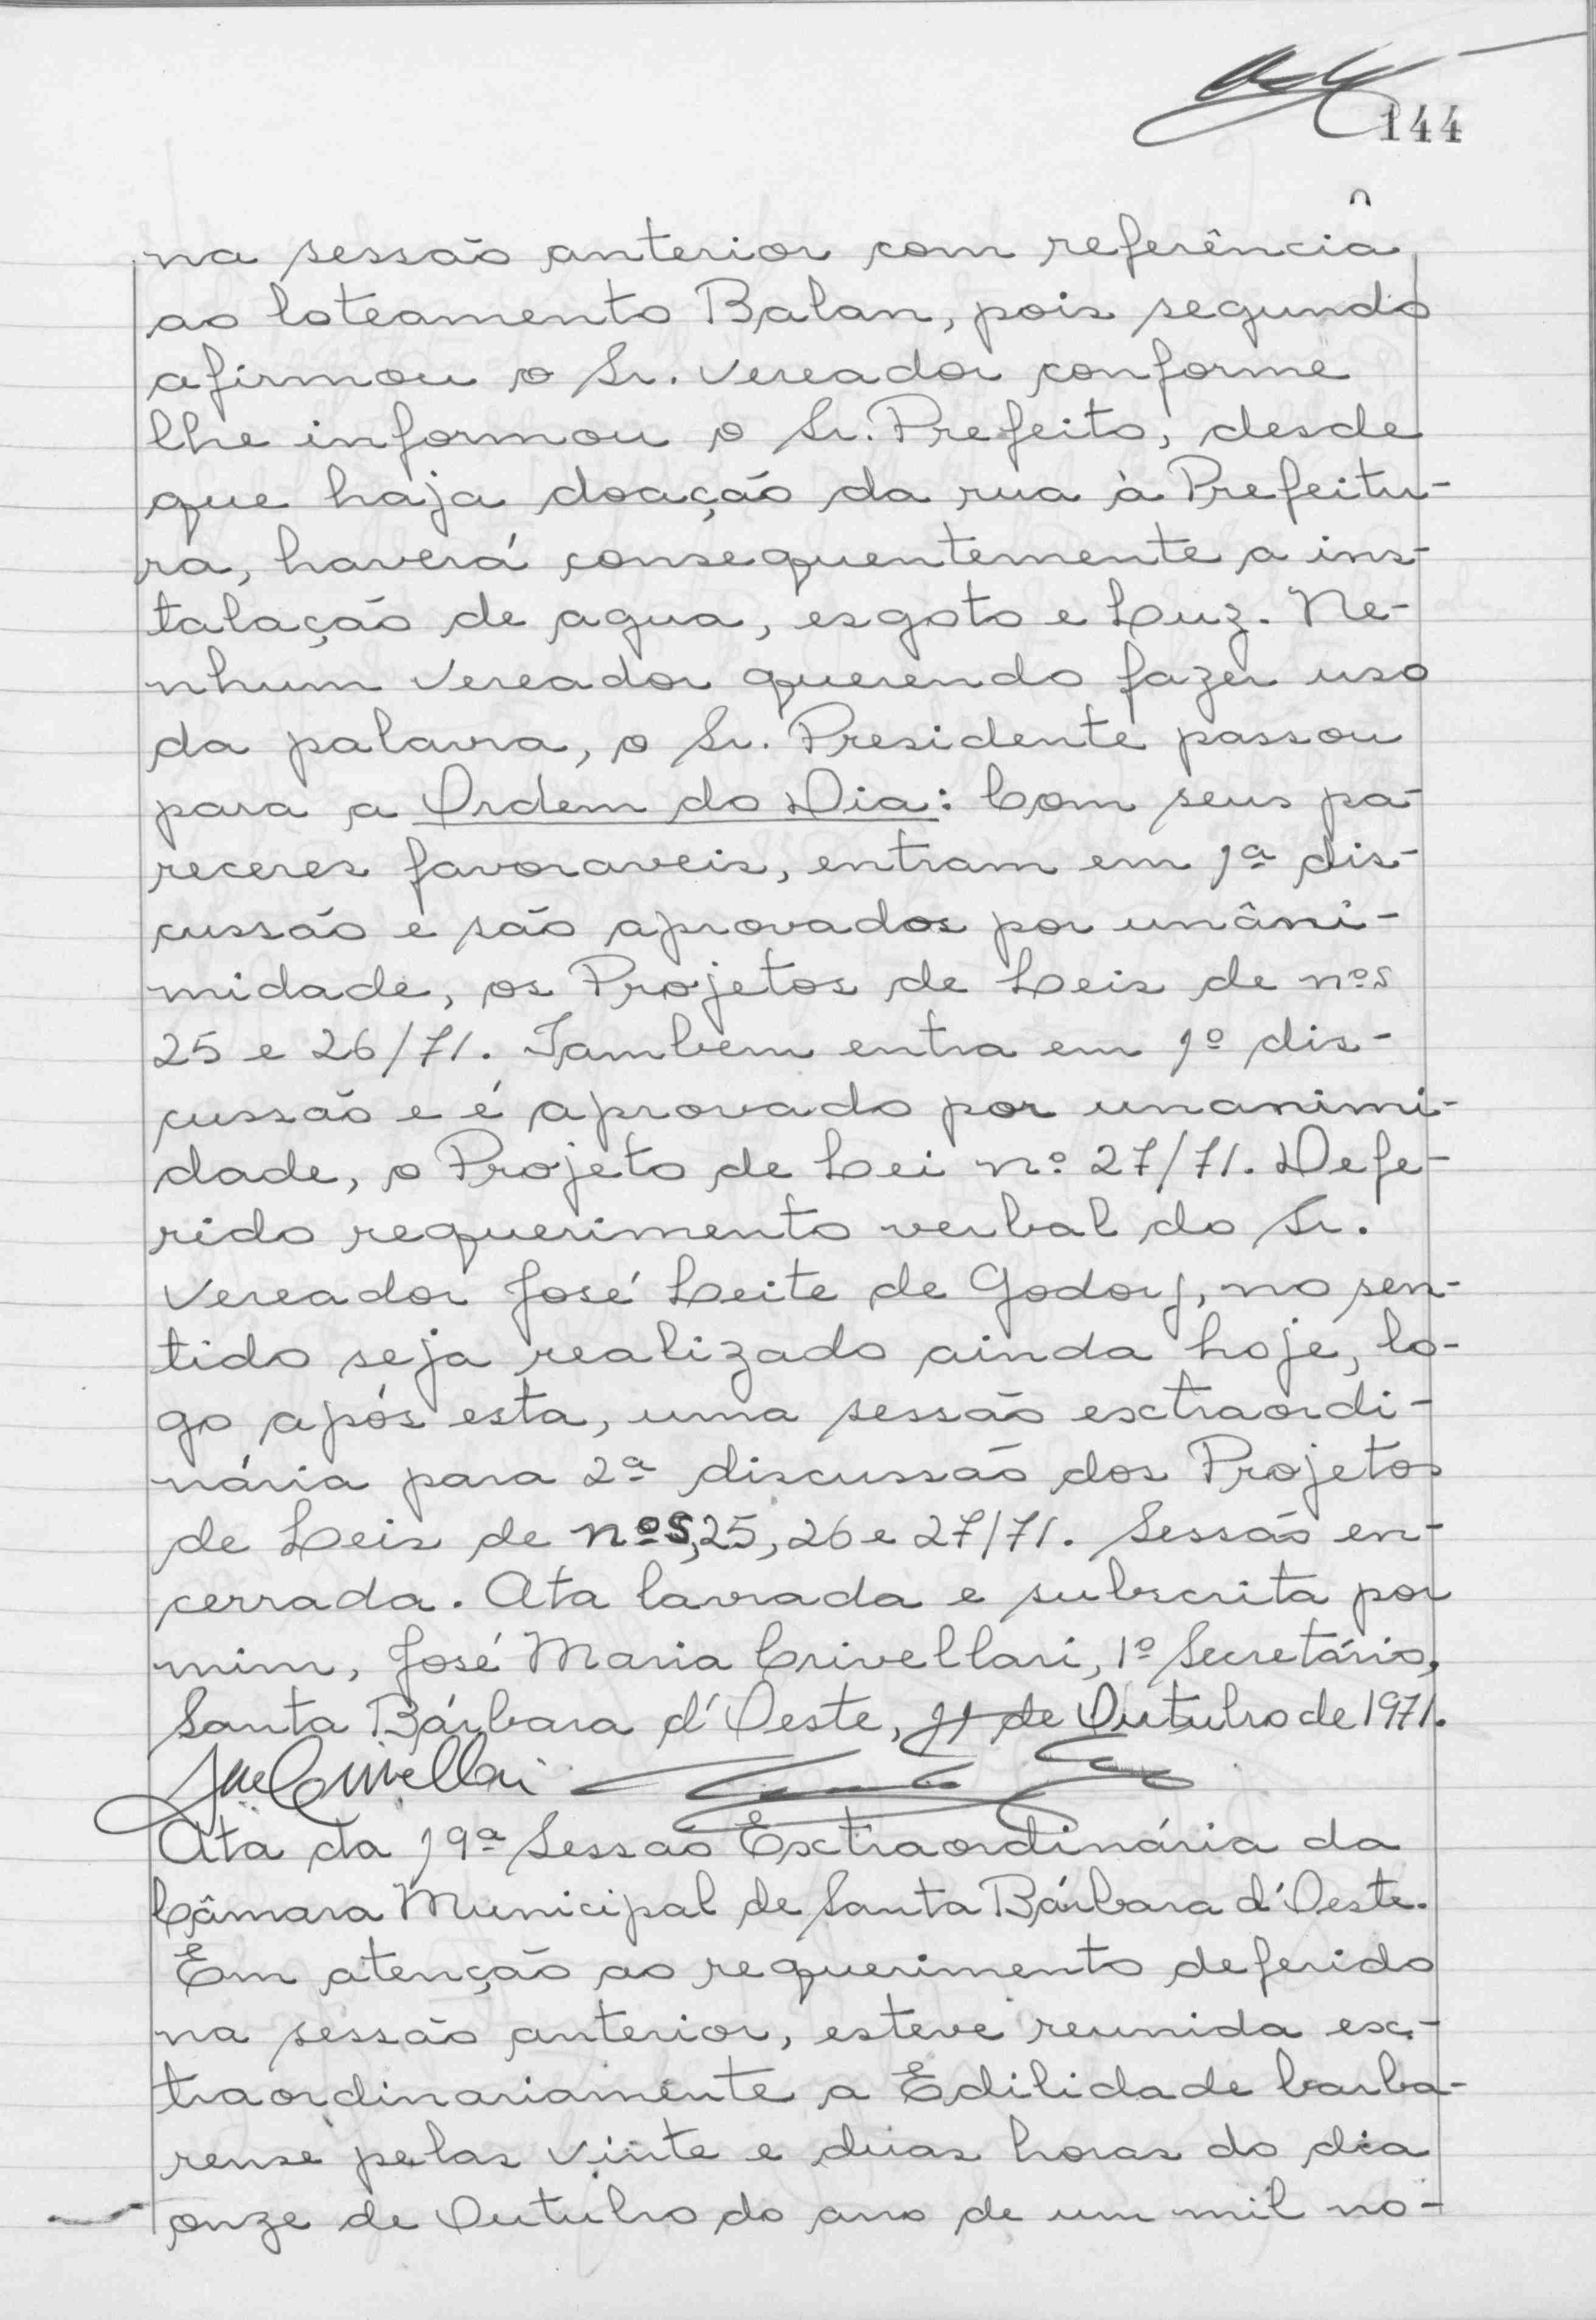 144
na sessão anterior com referência
ao loteamento Balan, pois segundo
afirmou o Sr. Vereador conforme
lhe informou o Sr. Prefeito, desde
que haja doação da rua à Prefeitu-
ra, haverá consequentemente a ins-
talação de agua, esgoto e Luz. Ne-
nhum Vereador querendo fazer uso
da palavra, o Sr. Presidente passou
para a Ordem do Dia: Com seus pa-
receres favoraveis, entram em 1ª dis-
cussão e são aprovados por unâni-
midade, os Projetos de Leis de nºs
25 e 26/71. Tambem entra em 1º dis-
cussão e é aprovado por unanimi-
dade, o Projeto de Lei nº 27/71. Defe-
rido requerimento verbal do Sr.
Vereador José Leite de Godoy, no sen-
tido seja realizado ainda hoje, lo-
go após esta, uma sessão extraordi-
nária para 2ª discussão dos Projetos
de Leis de nºs, 25, 26 e 27/71. Sessão en-
cerrada. Ata lavrada e subscrita por
mim, José Maria Crivellari, 1º Secretário,
Santa Bárbara d'Oeste, 11 de Outubro de 1971.
Ata da 19ª Sessão Extraordinária da
Câmara Municipal de Santa Bárbara d'Oeste.
Em atenção ao requerimento deferido
na sessão anterior, esteve reunida ex-
traordinariamente a Edilidade barba-
rense pelas vinte e duas horas do dia
onze de Outubro do ano de um mil no-